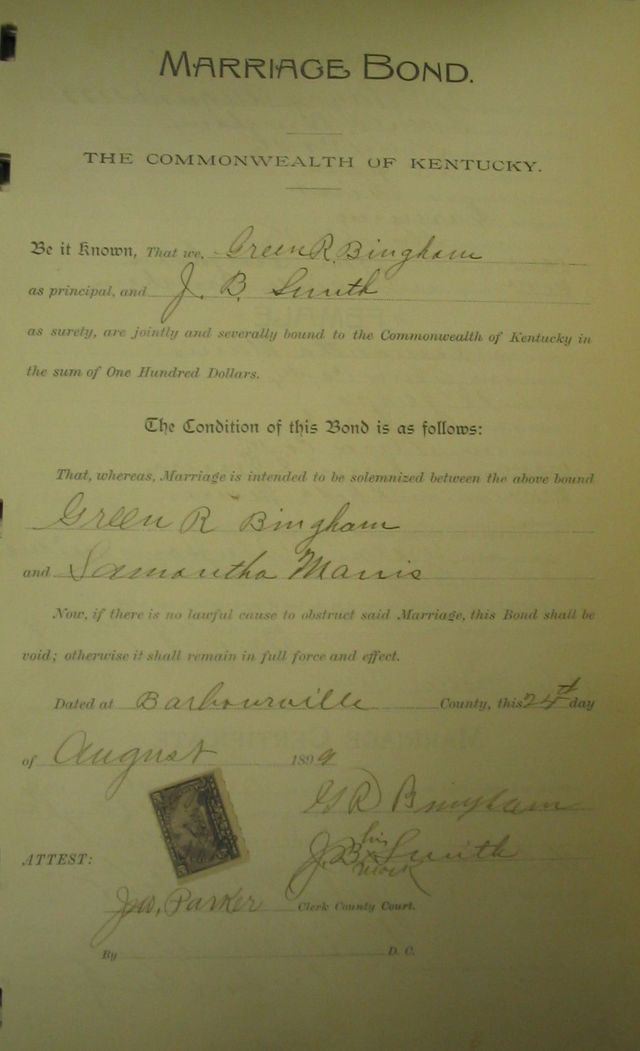 MARRIAGE BOND.
THE COMMONWEALTH OF KENTUCKY.
Be it Known, That we, Green R. Bingham
as principal, and J. B. Smith
as surety, are jointly and severally bound to the Commonwealth of Kentucky in
the sum of One Hundred Dollars.
The Condition of this Bond is as follows:
That, whereas, Marriage is intended to be solemnized between the above bound
Green R Bingham
and Samantha Marris
Now, if there is no lawful cause to obstruct said Marriage, this Bond shall be
void; otherwise it shall remain in full force and effect.
Dated at Barbourville County, this 24th day
of August 1899
G R Bingham
his
ATTEST: J. B x Smith
mark
Jno. Parker Clerk County Court.
By D. C.